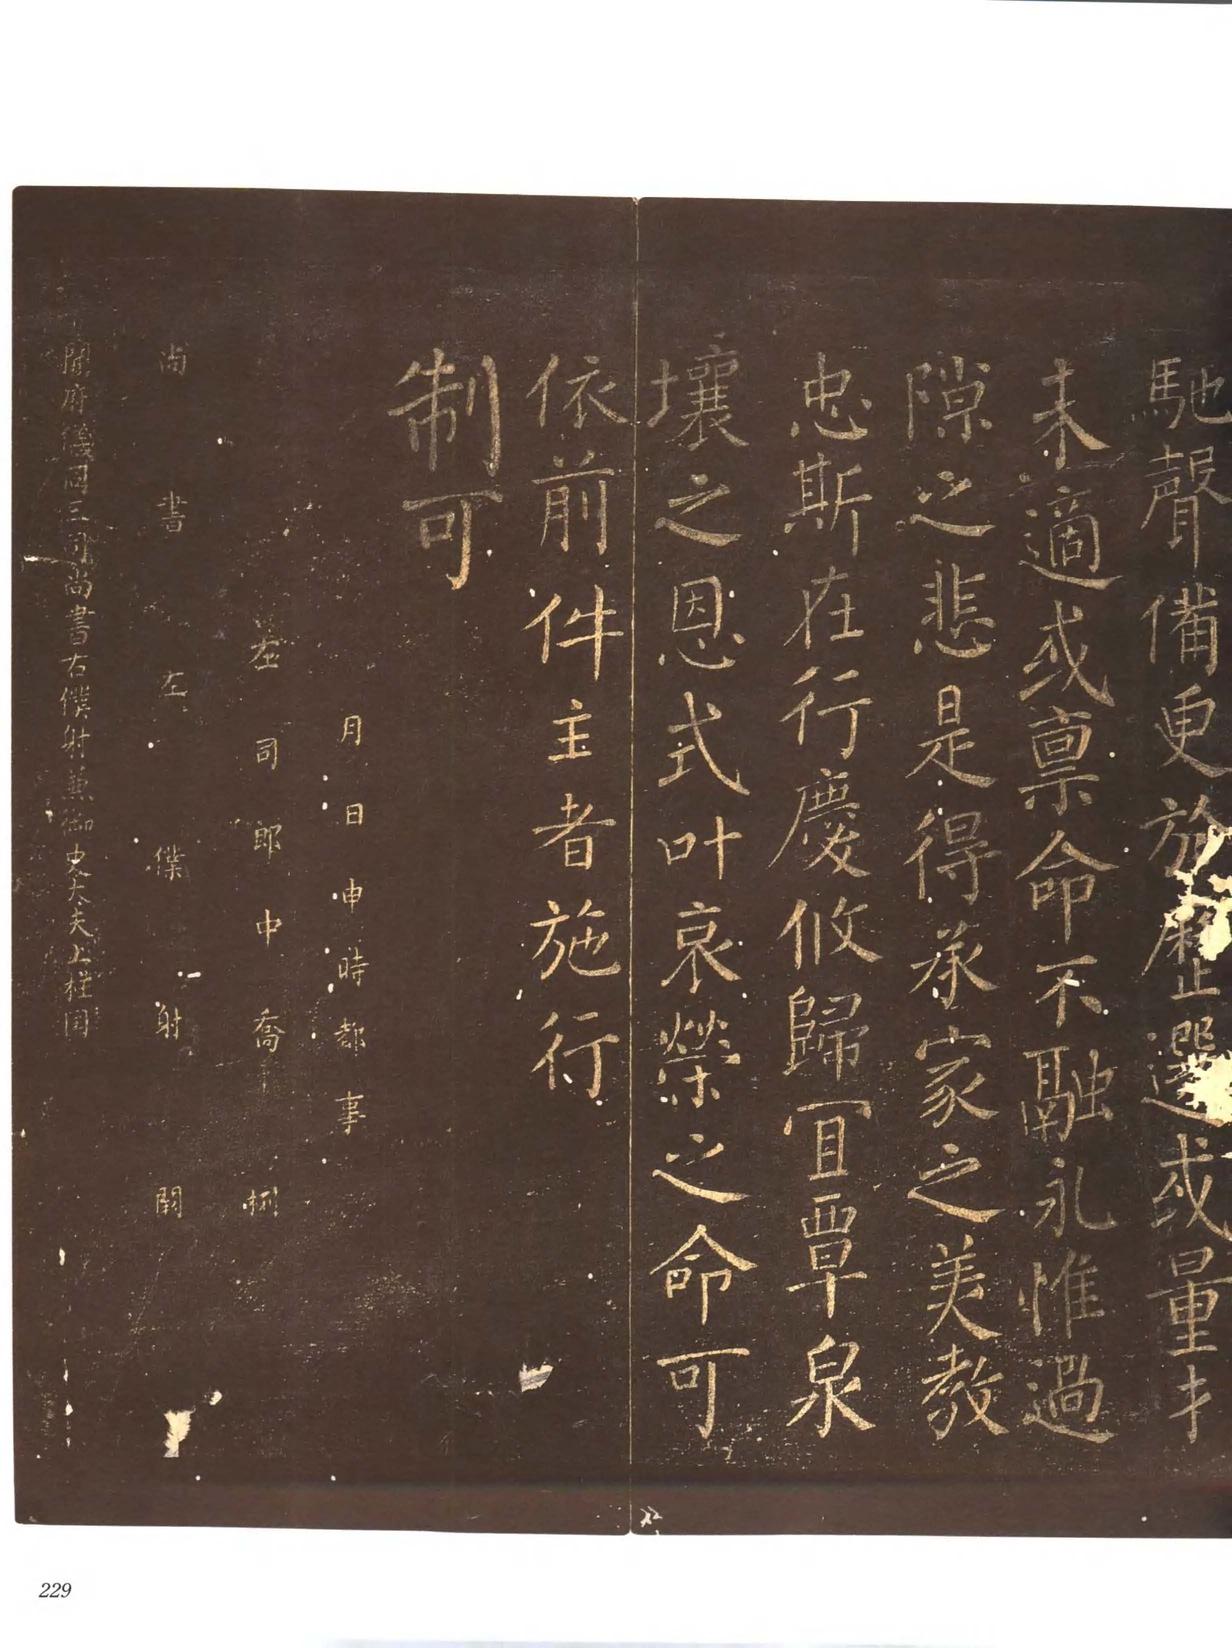 馳聲備更施歷選或量才
未適或禀命不融永惟過
隙之悲是得承家之美教
忠斯在行慶攸歸宜覃泉
壤之恩式叶哀榮之命可
依前件主者施行
制可
月日申時都事
左司郎中
尚書左僕射闕
開府儀同三司尚書右僕射兼御史大夫上柱國
229